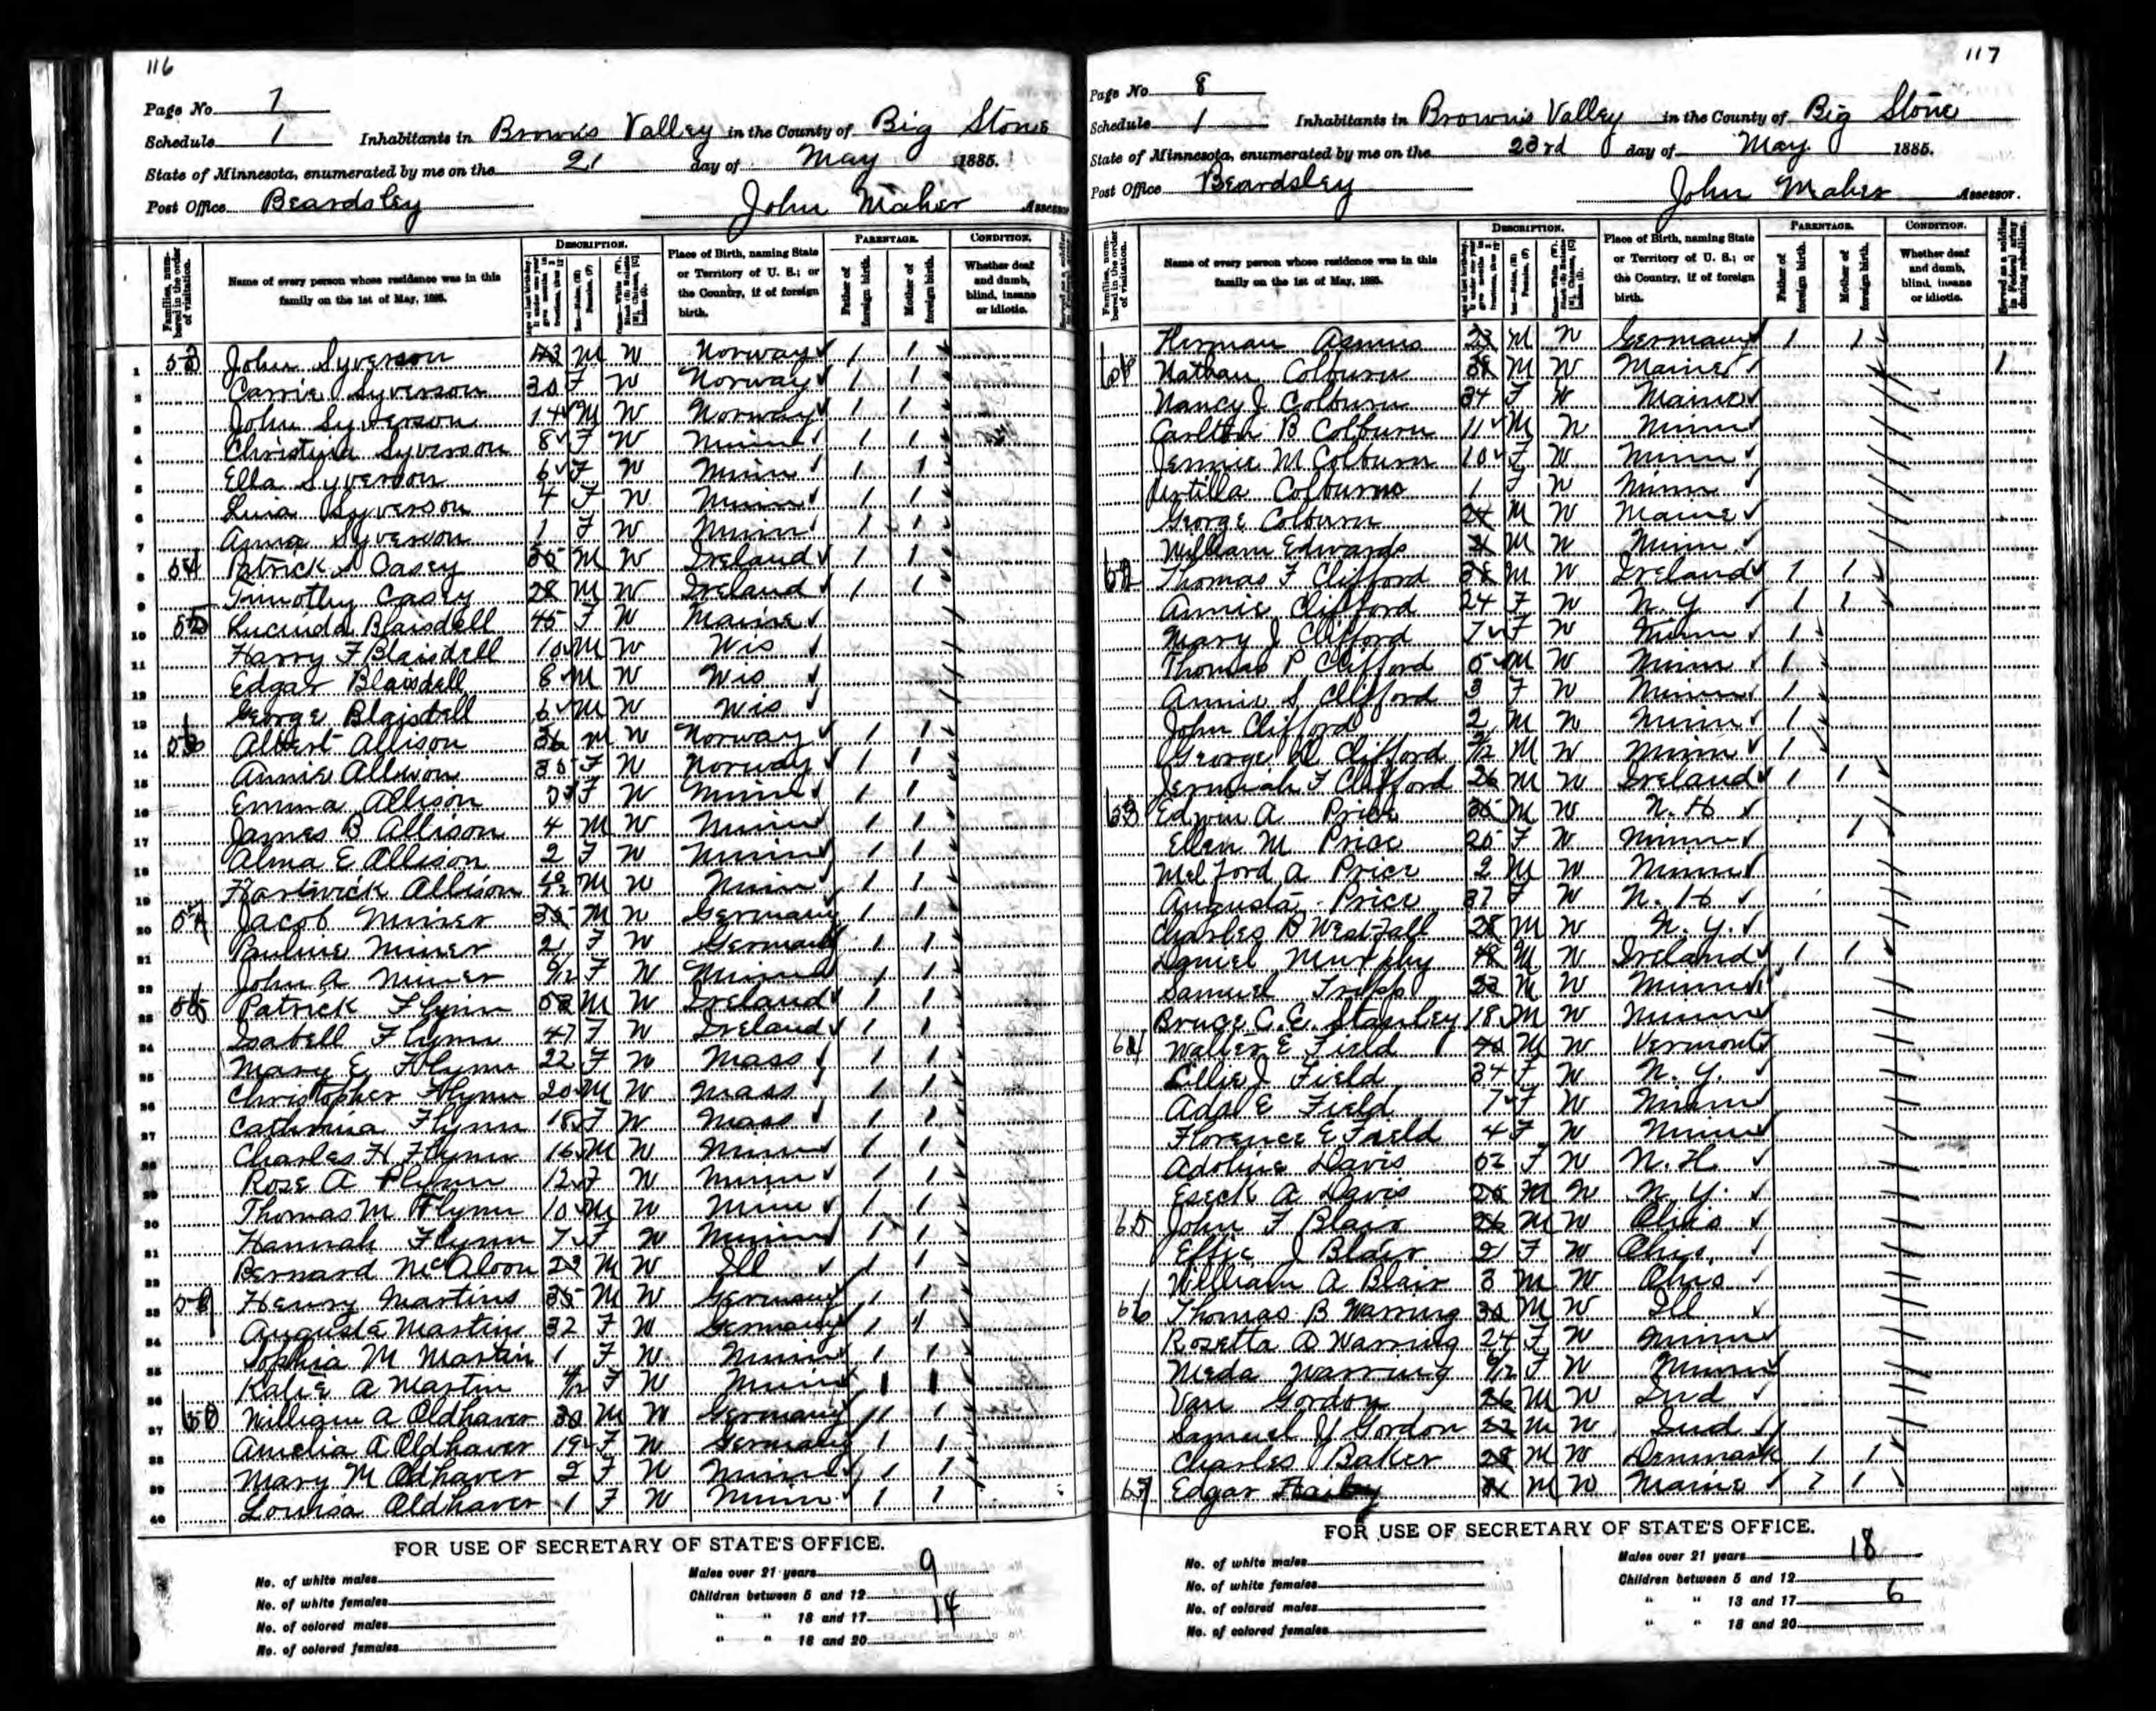 116
Page No. 7
Schedule 1 Inhabitants in Browns Valley in the County of Big Stone
State of Minnesota, enumerated by me on the 21 day of May 1885.
Post Office Beardsley John Maher Assessor
Families, numbered in the order of visitation.
Name of every person whose residence was in this family on the 1st of May, 1885.
DESCRIPTION.
Place of Birth, naming State or Territory of U. S.; or the Country, if of foreign birth.
PARENTAGE.
Father of foreign birth.
Mother of foreign birth.
CONDITION.
Whether deaf and dumb, blind, insane or idiotic.
1 53 John Syverson 43 M W Norway 1 1
2 Carrie Syverson 30 F W Norway 1 1
3 John Syverson 14 M W Norway 1 1
4 Christina Syverson 8 F W Minn 1 1
5 Ella Syverson 6 F W Minn 1 1
6 Syverson 4 F W Minn 1 1
7 Anna Syverson 1 F W Minn 1 1
8 54 Patrick Casey 35 M W Ireland 1 1
9 Timothy Casey 28 M W Ireland 1 1
10 55 Lucinda Blaisdell 45 F W Maine
11 Harry F Blaisdell 10 M W Wis
12 Edgar Blaisdell 8 M W Wis
13 George Blaisdell 6 M W Wis
14 56 Albert Allison 36 M W Norway 1 1
15 Annie Allison 35 F W Norway 1 1
16 Emma Allison F W Minn 1 1
17 James B Allison 4 M W Minn 1 1
18 Alma E Allison 2 F W Minn 1 1
19 Allison M W Minn 1 1
20 57 Jacob Miner 35 M W Germany 1 1
21 Pauline Miner 21 F W Germany 1 1
22 John A Miner F W Minn 1 1
23 58 Patrick Flynn 52 M W Ireland 1 1
24 Isabell Flynn 47 F W Ireland 1 1
25 Mary E Flynn 22 F W Mass 1 1
26 Christopher Flynn 20 M W Mass 1 1
27 Catherina Flynn 18 F W Mass 1 1
28 Charles H Flynn 16 M W Minn 1 1
29 Rose A Flynn 12 F W Minn 1 1
30 Thomas M Flynn 10 M W Minn 1 1
31 Hannah Flynn 7 F W Minn 1 1
32 Bernard McAloon 23 M W Ill 1 1
33 59 Henry Martins 35 M W Germany 1 1
34 Augusta Martin 32 F W Germany 1 1
35 Sophia M Martin 1 F W Minn 1 1
36 Katie A Martin F W Minn 1 1
37 60 William A Oldhaver 30 M W Germany 11 1
38 Amelia A Oldhaver 19 F W Germany 1 1
39 Mary M Oldhaver 2 F W Minn 1 1
40 Louisa Oldhaver 1 F W Minn 1 1
FOR USE OF SECRETARY OF STATE'S OFFICE.
No. of white males
No. of white females
No. of colored males
No. of colored females
Males over 21 years 9
Children between 5 and 12
" " 13 and 17 14
" " 18 and 20
117
Page No. 8
Schedule 1 Inhabitants in Browns Valley in the County of Big Stone
State of Minnesota, enumerated by me on the 23rd day of May 1885.
Post Office Beardsley John Maher Assessor.
Families, numbered in the order of visitation.
Name of every person whose residence was in this family on the 1st of May, 1885.
DESCRIPTION.
Place of Birth, naming State or Territory of U. S.; or the Country, if of foreign birth.
PARENTAGE.
Father of foreign birth.
Mother of foreign birth.
CONDITION.
Whether deaf and dumb, blind, insane or idiotic.
Served as a soldier in Federal army during rebellion.
Herman Asmus 23 M W Germany 1 1
61 Nathan Colburn 38 M W Maine 1
Nancy J Colburn 34 F W Maine
Carlton B Colburn 11 M W Minn
Jennie M Colburn 10 F W Minn
Colburn 1 F W Minn
George Colburn 24 M W Maine
William Edwards 21 M W Minn
62 Thomas F Clifford 38 M W Ireland 1 1
Annie Clifford 24 F W N.Y. 1 1
Mary J Clifford 7 F W Minn 1
Thomas P Clifford 5 M W Minn 1
Annie S Clifford 3 F W Minn 1
John Clifford 2 M W Minn 1
George W Clifford M W Minn 1
Jeremiah F Clifford 26 M W Ireland 1 1
63 Edwin A Price 35 M W N.H
Ellen M Price 25 F W Minn 1
Melford A Price 2 M W Minn
Augusta Price 37 F W N.H
Charles B Westfall 28 M W N.Y.
Daniel Murphy 48 M W Ireland 1 1
Samuel Tripp 22 M W Minn
Bruce C.E. Stanley 18 M W Minn
64 Walter E Field 40 M W Vermont
Lillie J Field 34 F W N.Y.
Ada E Field 7 F W Minn
Florence E Field 4 F W Minn
Adoline Davis 62 F W N.H.
Eseck A Davis 25 M W N.Y.
65 John F Blair 26 M W Ohio
Effie J Blair 21 F W Ohio
William A Blair 3 M W Ohio
66 Thomas B Warring 30 M W Ill
Rozetta D Warring 24 F W Minn
Meda Warring F W Minn
Van Gordon 26 M W Ind
Samuel Y Gordon 22 M W Ind
Charles Baker 28 M W Denmark 1 1
67 Edgar 21 M W Maine 1 1
FOR USE OF SECRETARY OF STATE'S OFFICE.
No. of white males
No. of white females
No. of colored males
No. of colored females
Males over 21 years 18
Children between 5 and 12
" " 13 and 17 6
" " 18 and 20